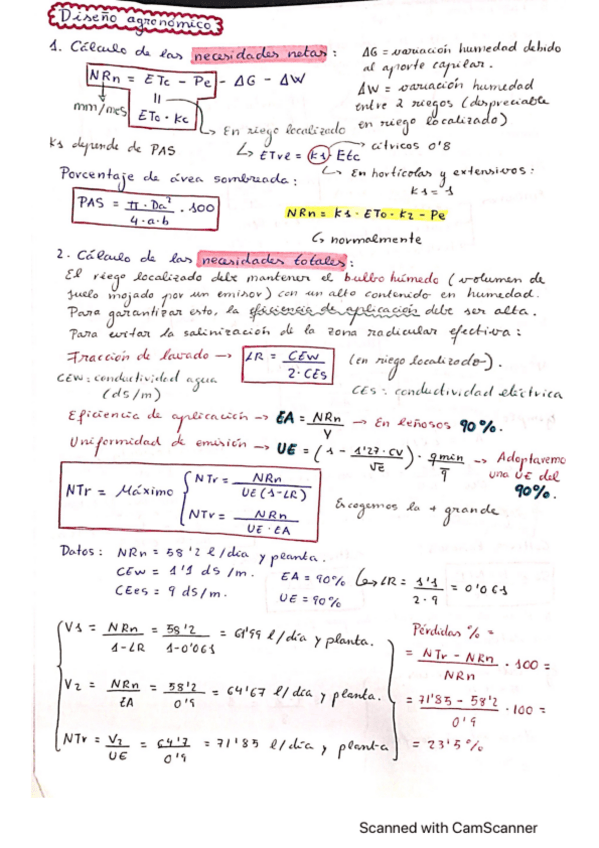 Diseño agronómico
1. Cálculo de las necesidades netas:
ΔG = variación humedad debido
al aporte capilar.
NRn = ETc - Pe - ΔG - ΔW
ΔW = variación humedad
entre 2 riegos (despreciable
en riego localizado)
mm/mes
ETo · Kc
En riego localizado
K1 depende de PAS
ETrl = K1 · Etc
cítricos 0'8
En hortícolas y extensivos:
K1 = 1
Porcentaje de área sombreada:
PAS = π · Da² / 4·a·b · 100
NRn = K1 · ETo · K2 - Pe
normalmente
2. Cálculo de las necesidades totales:
El riego localizado debe mantener el bulbo húmedo (volumen de
suelo mojado por un emisor) con un alto contenido en humedad.
Para garantizar esto, la eficiencia de aplicación debe ser alta.
Para evitar la salinización de la zona radicular efectiva:
Fracción de lavado → LR = CEw / 2·CEs (en riego localizado).
CEw: conductividad agua
(dS/m)
CEs: conductividad eléctrica
Eficiencia de aplicación → EA = NRn / V → En leñosos 90%.
Uniformidad de emisión → UE = (1 - 1'27·CV / √e) · qmin / q̄ → Adoptaremo
una UE del
90%.
NTr = Máximo { NTr = NRn / UE(1-LR)
NTr = NRn / UE·EA
Escogemos la + grande
Datos: NRn = 58'2 l/día y planta.
CEw = 1'1 dS/m.
EA = 90%
LR = 1'1 / 2·9 = 0'061
CEes = 9 dS/m.
UE = 90%
V1 = NRn / 1-LR = 58'2 / 1-0'061 = 61'99 l/día y planta.
V2 = NRn / EA = 58'2 / 0'9 = 64'67 l/día y planta.
NTr = V2 / UE = 64'7 / 0'9 = 71'85 l/día y planta
Pérdidas % =
= NTr - NRn / NRn · 100 =
= 71'85 - 58'2 / 0'9 · 100 =
= 23'5%
Scanned with CamScanner